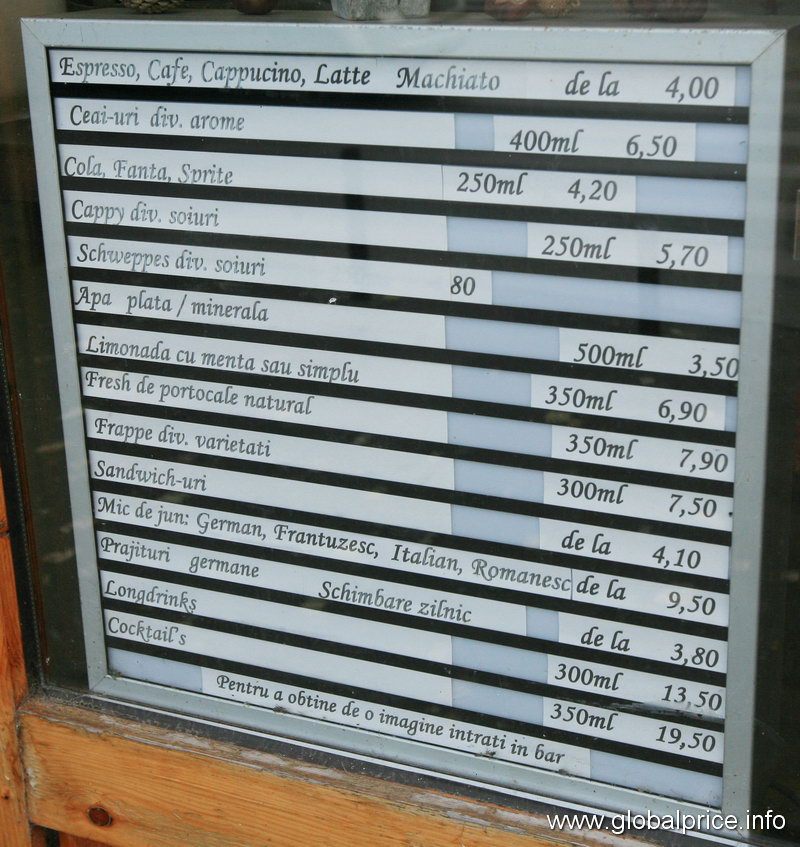 Espresso, Cafe, Cappucino, Latte Machiato de la 4,00
Ceai-uri div. arome 400ml 6,50
Cola, Fanta, Sprite 250ml 4,20
Cappy div. soiuri 250ml 5,70
Schweppes div. soiuri 80
Apa plata / minerala 500ml 3,50
Limonada cu menta sau simplu 350ml 6,90
Fresh de portocale natural 350ml 7,90
Frappe div. varietati 300ml 7,50
Sandwich-uri de la 4,10
Mic de jun: German, Frantuzesc, Italian, Romanesc de la 9,50
Prajituri germane Schimbare zilnic de la 3,80
Longdrinks 300ml 13,50
Cocktail's 350ml 19,50
Pentru a obtine de o imagine intrati in bar
www.globalprice.info